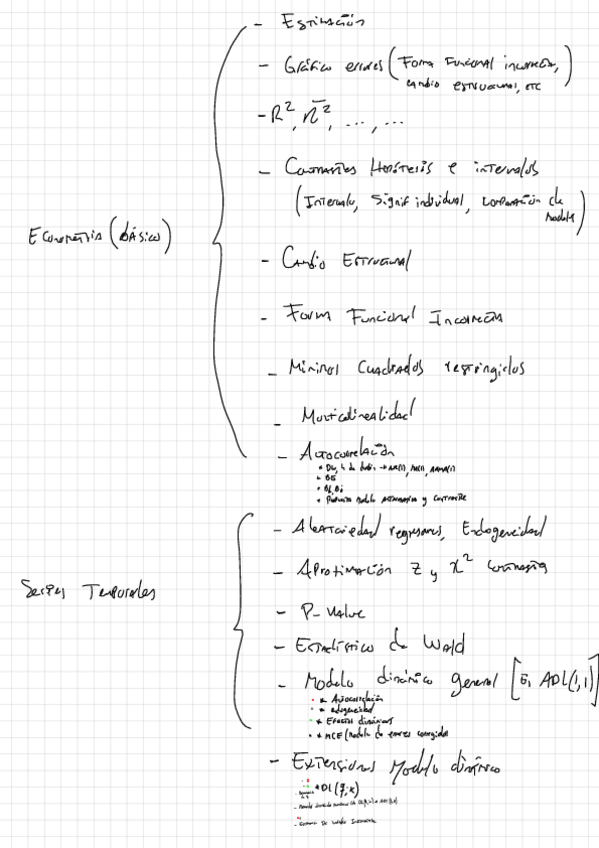 - Estimación
- Gráfico errores (Forma Funcional incorrecta,
cambio estructural, etc
- R², R̄², ..., ...
- Contrastes Hipótesis e intervalos
(Intervalo, Signif individual, comparación de
modelos)
Econometría (básico)
- Cambio Estructural
- Form Funcional Incorrecta
- Mínimos Cuadrados restringidos
- Multicolinealidad
- Autocorrelación
• BG
- Aleatoriedad regresores, Endogeneidad
- Aproximación Z y χ² contraste
Series Temporales
- P-value
- Estadístico de Wald
- Modelo dinámico general [Ej ADL(1,1)]
* Autocorrelación
* endogeneidad
* Efectos dinámicos
* MCE (modelo de errores corregidos
- Extensiones Modelo dinámico
ADL(q,k)